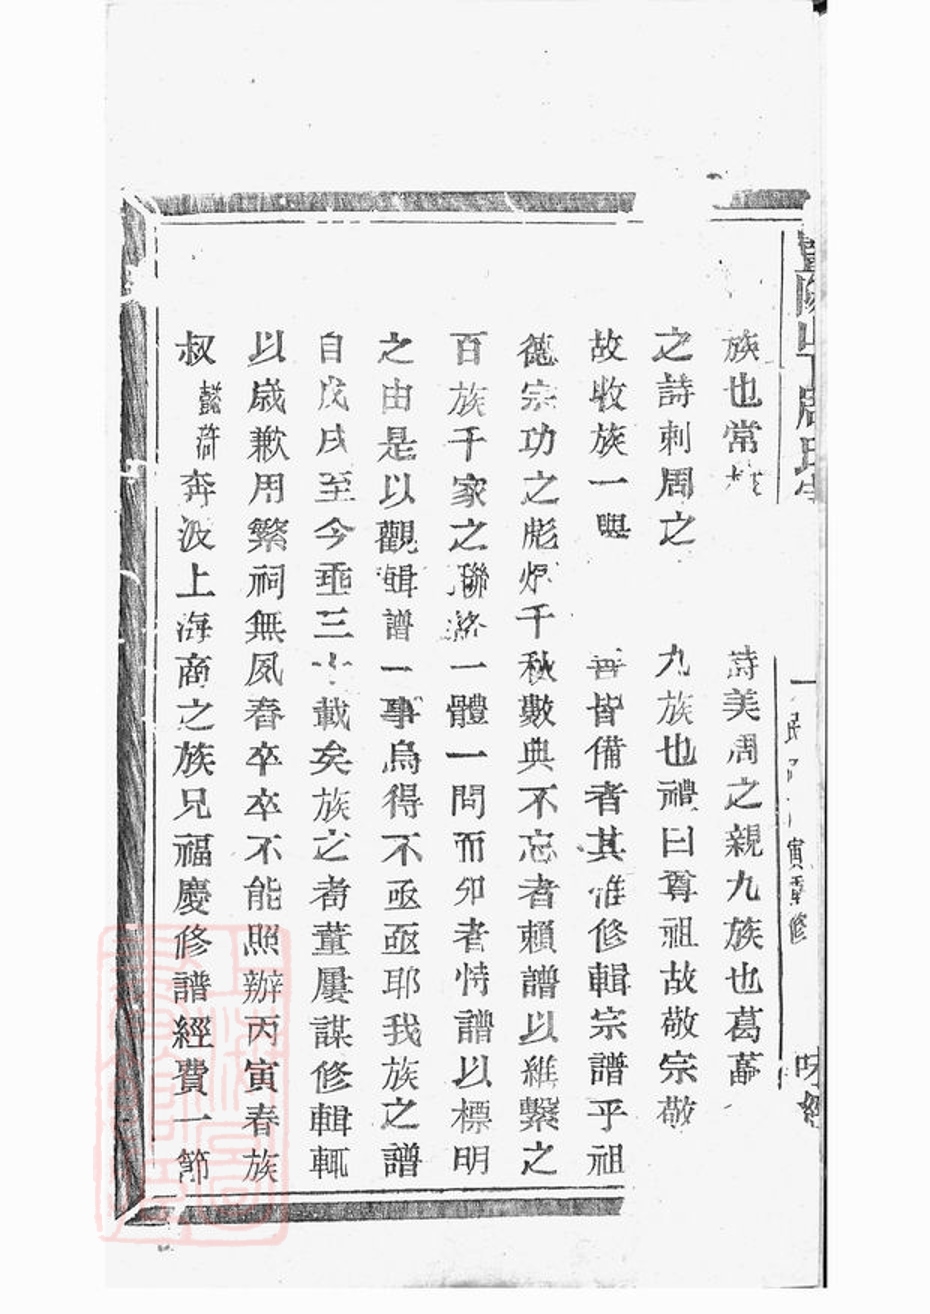 族也常
詩美周之親九族也葛藟
之詩刺周之
九族也禮曰尊祖故敬宗敬
故收族一舉
善皆備者其惟修輯宗譜乎祖
德宗功之彪炳千秋數典不忘者賴譜以維繫之
百族千家之聯絡一體一問而卯者恃譜以標明
之由是以觀輯譜一事烏得不亟亟耶我族之譜
自戊戌至今垂三十載矣族之耆董屢謀修輯輒
以歲歉用繁祠無夙舂卒卒不能照辦丙寅春族
叔懿滸奔波上海商之族兄福慶修譜經費一節
周氏
寅重修